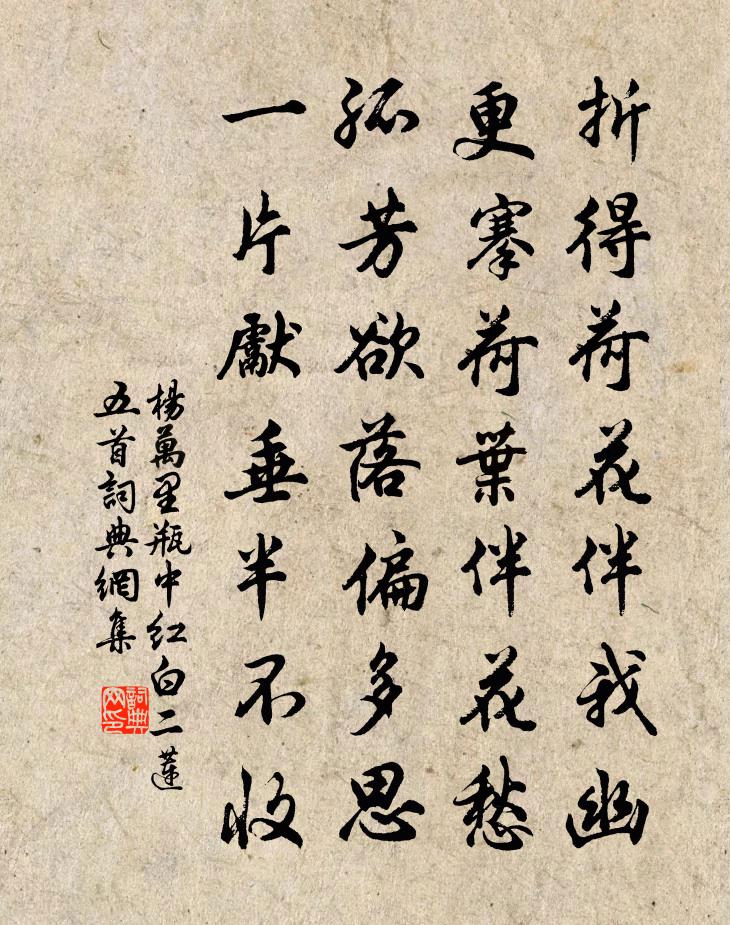 折得荷花伴我幽
更搴荷葉伴花愁
孤芳欲落偏多思
一片獻垂半不收
楊萬里瓶中紅白二蓮
五首詞典網集
詞典
网印